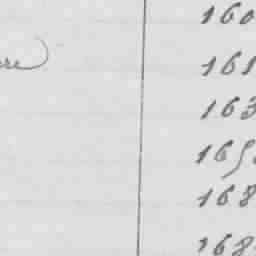 160
161
163
165
168
168